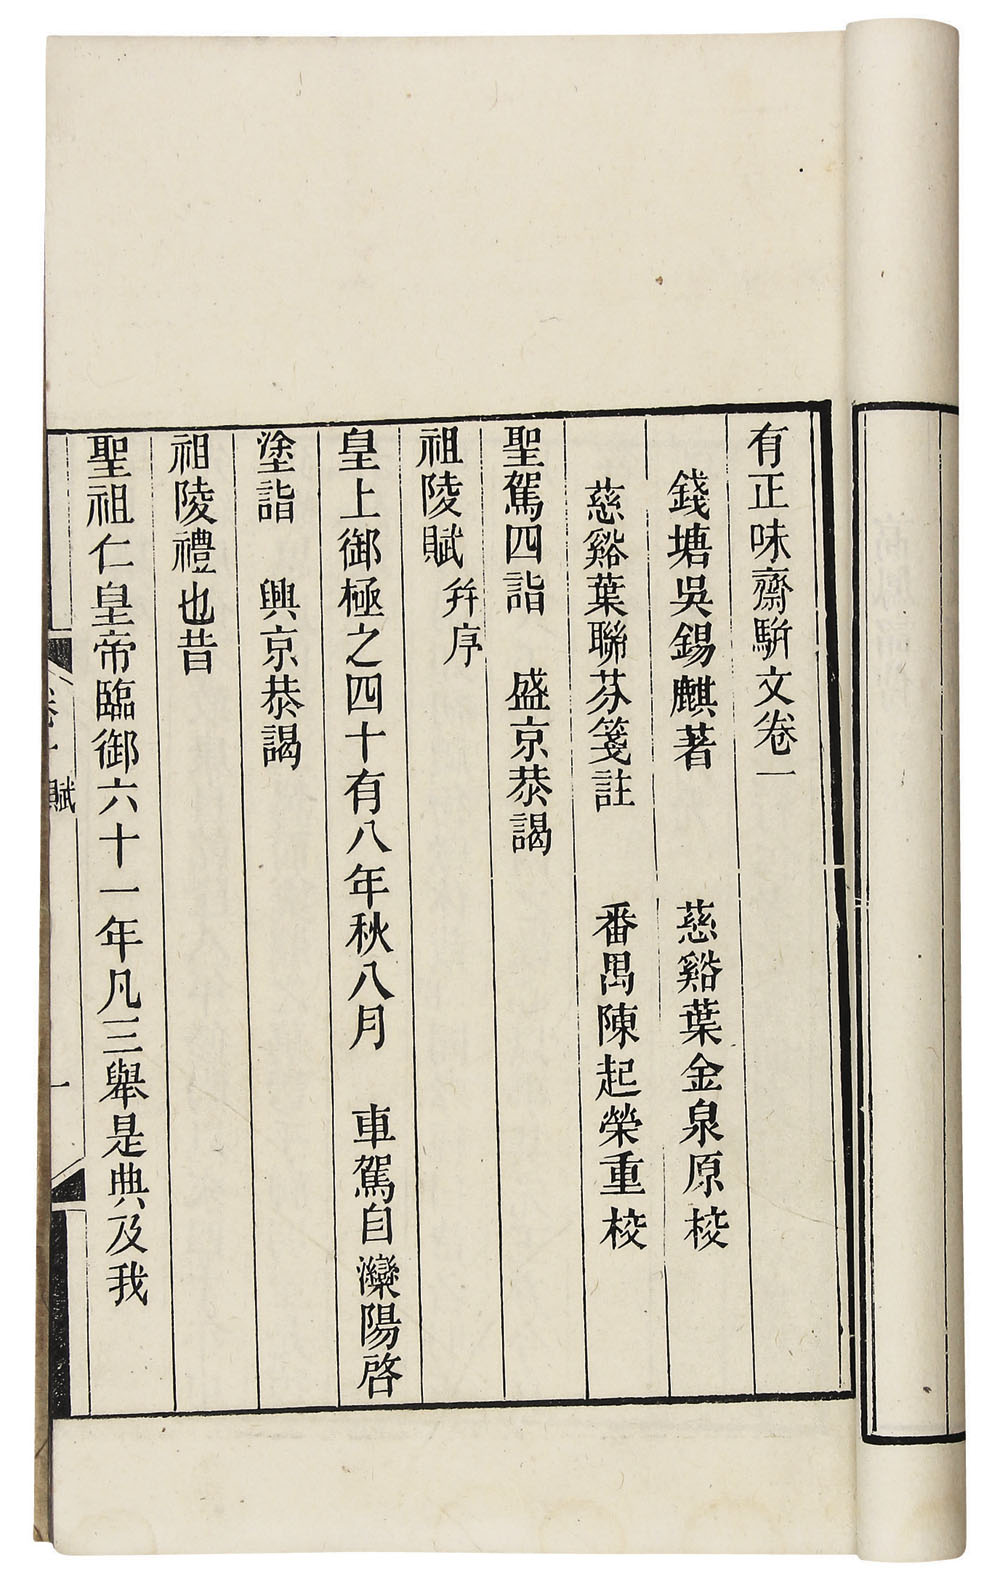 有正味齋駢文卷一
錢塘吳錫麒著　慈谿葉金泉原校
慈谿葉聯芬箋註　番禺陳起榮重校
聖駕四詣　盛京恭謁
祖陵賦 幷序
皇上御極之四十有八年秋八月　車駕自灤陽啓
塗詣　興京恭謁
祖陵禮也昔
聖祖仁皇帝臨御六十一年凡三舉是典及我
卷一 賦
一